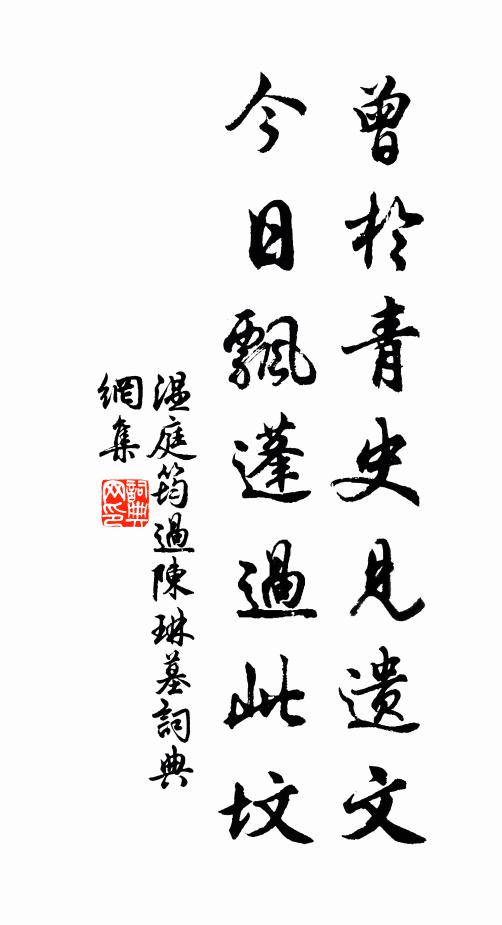 曾於青史見遺文
今日飄蓬過此坟
温庭筠過陳琳墓詞典
網集
詞典
网印